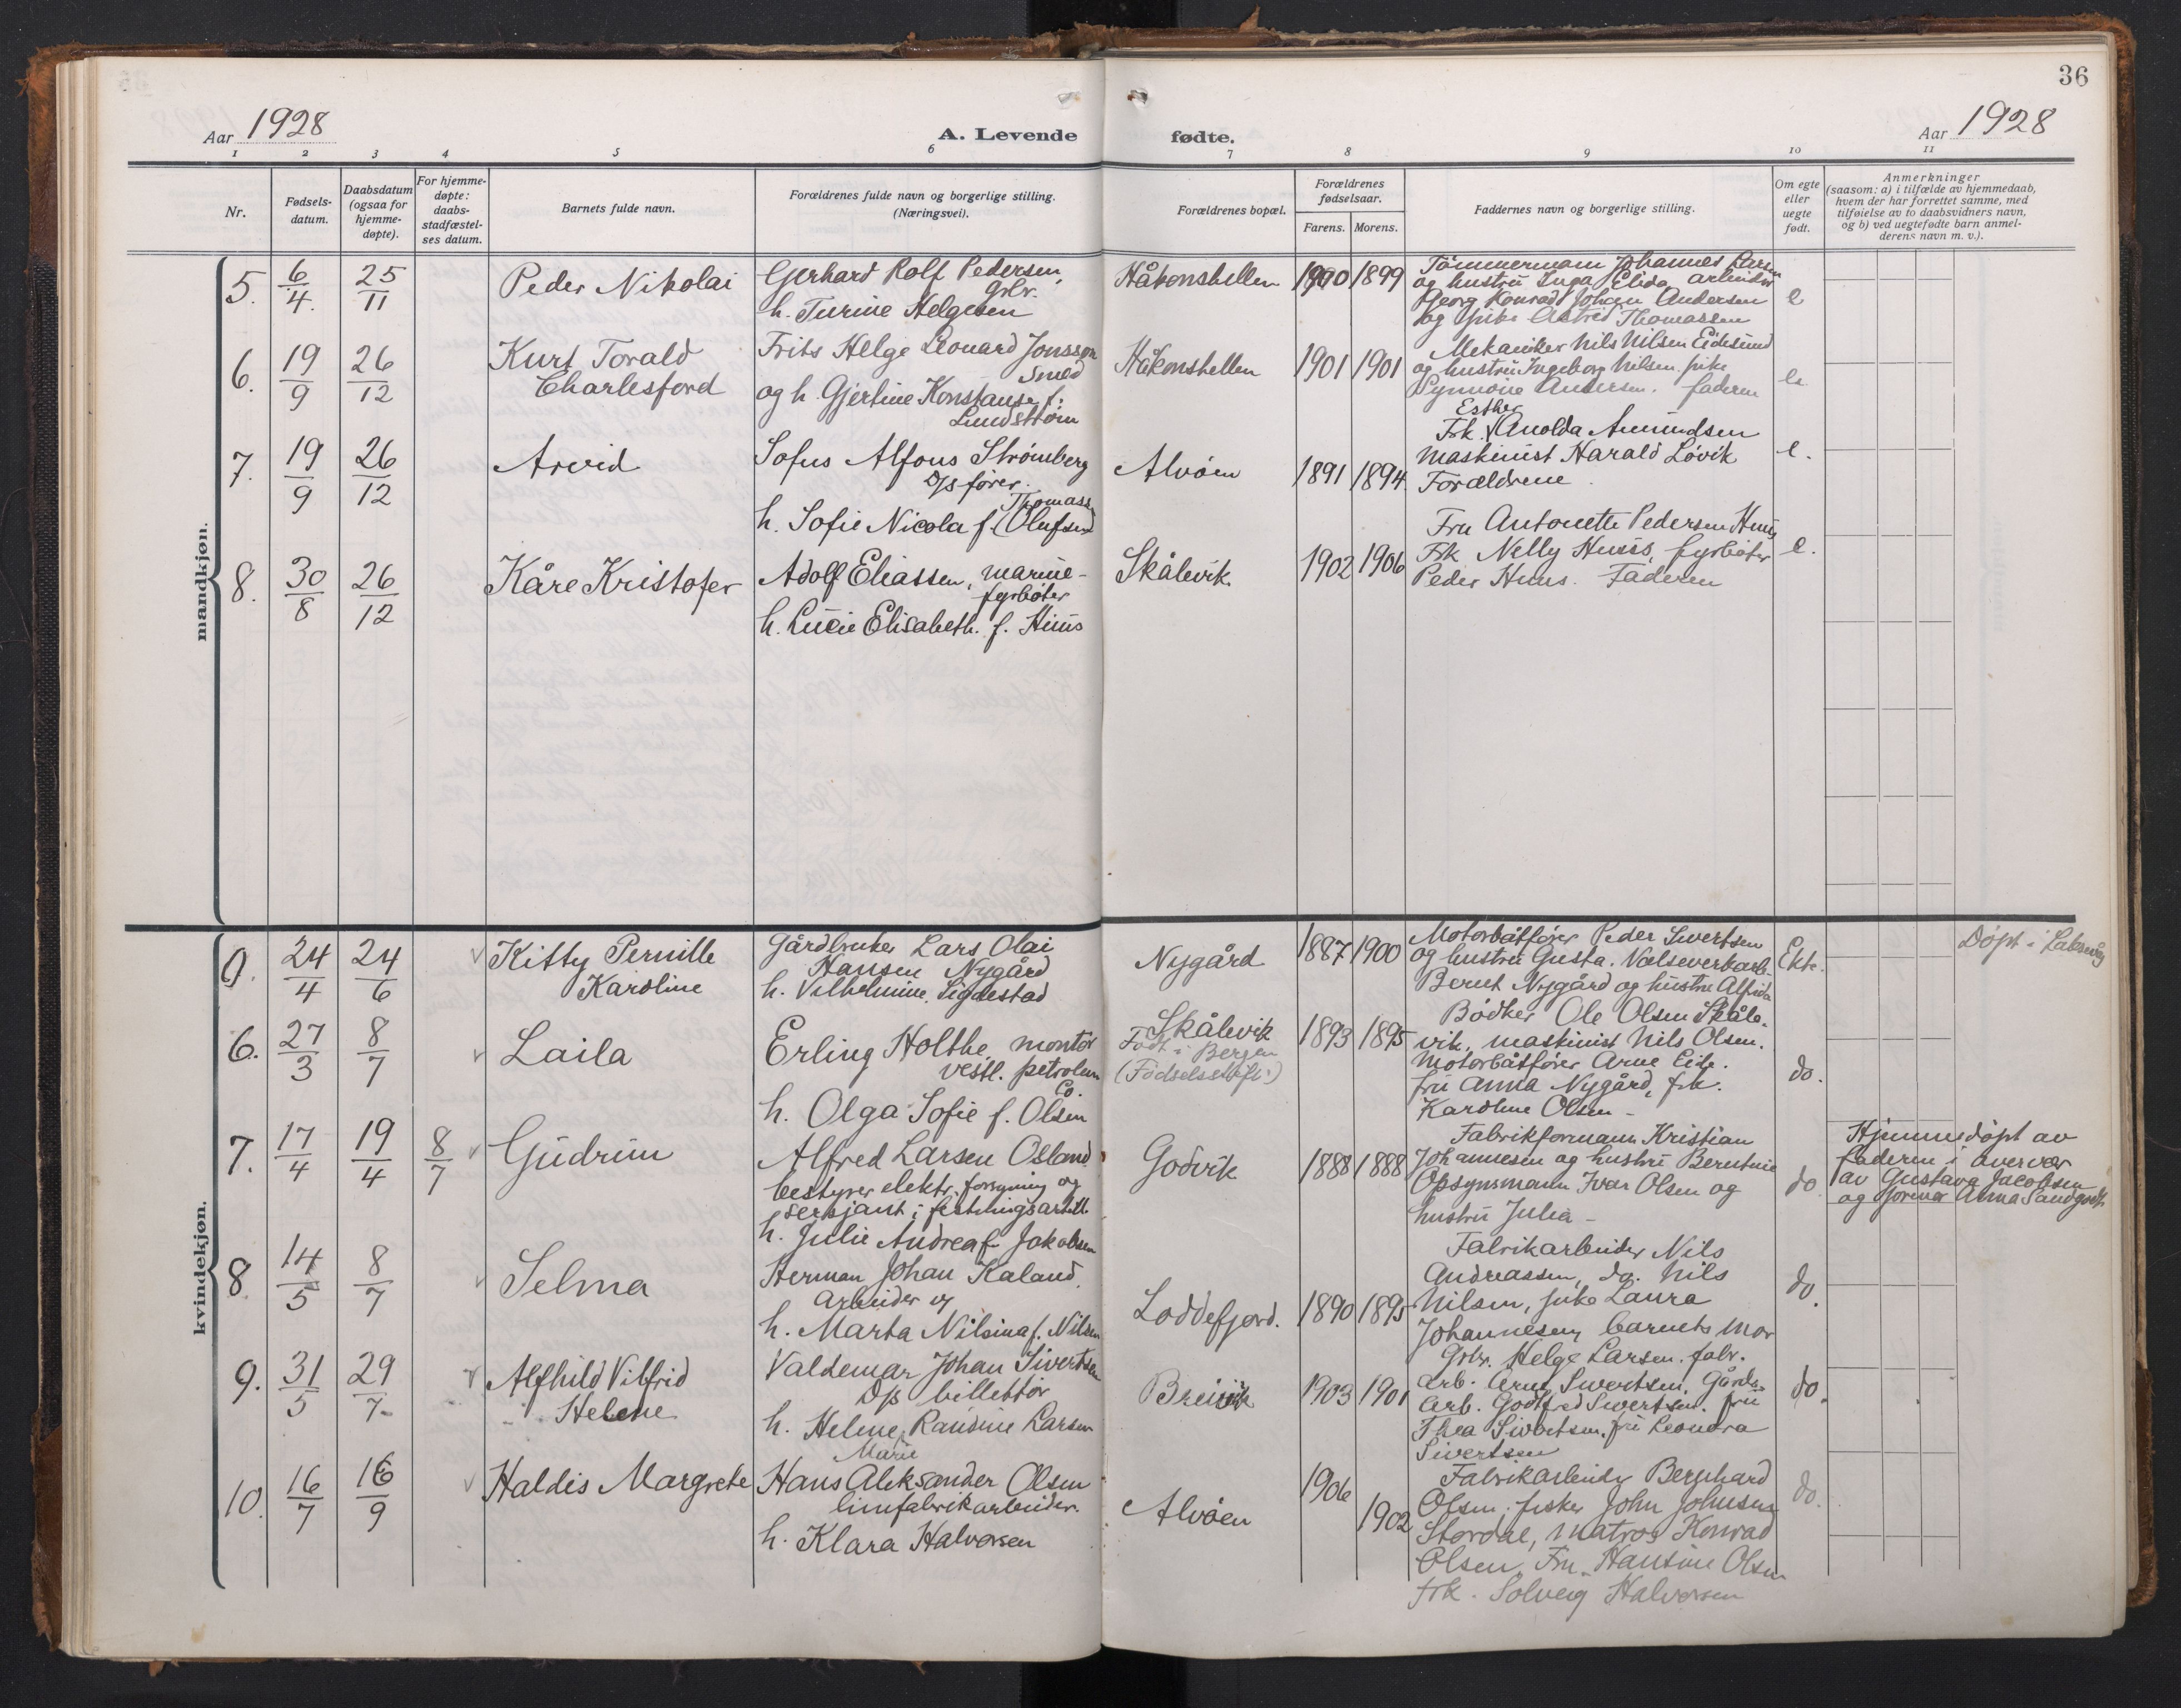 36
Aar 1928
A. Levende fødte.
Aar 1928
1 2 3 4 5 6 7 8 9 10 11
Nr.
Fødsels-
datum.
Daabsdatum
(ogsaa for
hjemme-
døpte).
For hjemme-
døpte:
daabs-
stadfæstel-
ses datum.
Barnets fulde navn.
Forældrenes fulde navn og borgerlige stilling.
(Næringsvei).
Forældrenes bopæl.
Forældrenes
fødselsaar.
Farens. Morens.
Faddernes navn og borgerlige stilling.
Om egte
eller
uegte
født.
Anmerkninger
(saasom: a) i tilfælde av hjemmedaab,
hvem der har forrettet samme, med
tilføielse av to daabsvidners navn,
og b) ved uegtefødte barn anmel-
derens navn m. v.).
mandkjøn.
5. 6/4. 25/11
Peder Nikolai
Gerhard Rolf Pedersen,
Grbr.
h. Turine Helgesen
Håkonshellen
1900 1899
Tømmermann Johannes Larsen
og hustru Inga Elida arbeider
Georg Konrad Johan Andersen
og pike Astrid Thomassen
e
6. 19/9 26/12
Kurt Torald
Charlesford
Frits Helge Leonard Jonsson
Smed
og h. Gjertine Konstanse f.
Lundstrøm
Håkonshellen
1901 1901
Mekaniker Nils Nilsen Eidesund
og hustru Ingeborg Nilsen. pike
Synnøve Andersen. faderen
e.
7. 19/9 26/12
Arvid
Sofus Alfons Strømberg
D/s fører.
Thomassen
h. Sofie Nicola f. Olufsen
Alvøen
1891 1894.
Esther
Frk. Anolda Amundsen
maskinist Harald Løvik
Forældrene
e.
8. 30/8 26/12
Kåre Kristofer
Adolf Eliassen, marine-
fyrbøter
h. Lucie Elisabeth. f. Huus
Skålevik
1902 1906
Fru Antonette Pedersen Huus
Frk Nelly Huus, fyrbøter
Peder Huus. Faderen
e.
kvindekjøn.
24/4 24/6
Kitty Pernille
Karoline
Gårdbruker Lars Olai
Hansen Nygård
h. Vilhelmine Sigdestad
Nygård
1887 1900
Motorbåtfører Peder Sivertsen
og hustru Gusta.
Bernt Nygård og hustru Alfrida
Ekte.
Døpt i Laksevåg
6. 27/3 8/7
Laila
Erling Holthe, montør
vestl. petroleum
Co.
h. Olga Sofie f. Olsen
Skålevik
Født i Bergen
(Fødselsstift.)
1893 1895
Bødker Ole Olsen Skåle-
vik, maskinist Nils Olsen.
Motorbåtfører Arne Eide.
fru Anna Nygård, frk.
Karoline Olsen -
do.
7. 17/4 19/4 8/7
Gudrun
Alfred Larsen Osland
bestyrer elektr. forsyning og
serjant i festningsartill.
h. Julie Andrea f. Jakobsen
Godvik
1888 1888
Fabrikformann Kristian
Johannesen og hustru Berntine
Opsynsmann Ivar Olsen og
hustru Julia -
do
Hjemmedøpt av
faderen i overvær
av Gustava Jacobsen
og Anna Sandgodt
8 14/5 8/7
Selma
Herman Johan Kaland,
arbeider og
h. Marta Nilsina f. Nilsen
Loddefjord.
1890 1895
Fabrikarbeider Nils
Andreassen, do. Nils
Nilsen, pike Laura
Johannesen, barnets mor
do.
9. 31/5 29/7
Alfhild Vilfrid
Helene
Valdemar Johan Sivertsen
D/s billettør
h. Helene Raudine Larsen
Marie
Breivik
1903 1901
Grbr. Helge Larsen. fabr.
arb. Arne Sivertsen. Gårds-
arb. Godtfred Sivertsen. fru
Thea Sivertsen. fru Leonora
Sivertsen
do.
10. 16/7 16/9
Haldis Margrete
Hans Aleksander Olsen
limfabrikarbeider.
h. Klara Halvorsen
Alvøen
1906 1902
Fabrikarbeider Bernhard
Olsen, fisker John Johnsen
Stordal, matros Konrad
Olsen, Fru. Hansine Olsen
frk. Solveig Halvorsen
do.